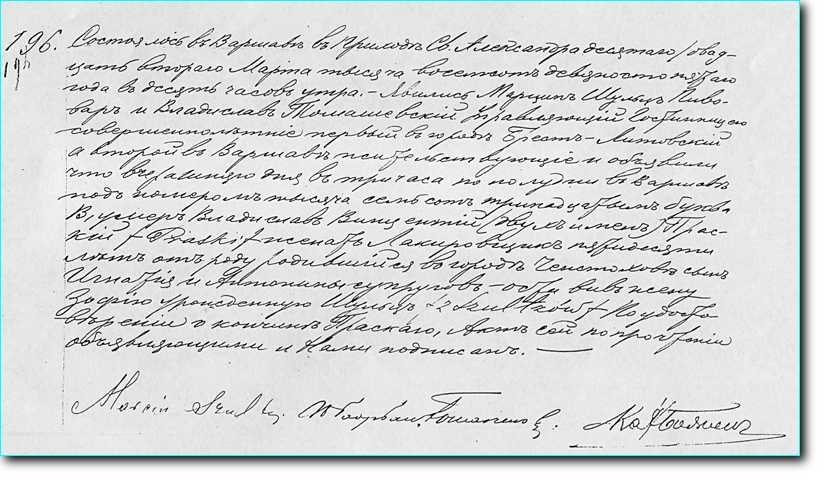 196. Состоялось въ Варшавѣ въ Приходѣ Св. Александра десятаго / двад-
цать втораго Марта тысяча восемьсотъ девяносто пятаго
года въ десять часовъ утра. – Явились Марцинъ Шульцъ Пиво-
варъ и Владиславъ Томашевскій Управляющій Гостинницею
совершеннолѣтніе первый въ городѣ Брестъ-Литовскій
а второй въ Варшавѣ жительствующіе и объявили
что вчерашняго дня въ три часа по полудни въ Варшавѣ
подъ номеромъ тысяча семьсотъ тридцатымъ буква
В, умеръ Владиславъ Винцентій (двухъ именъ) Прас-
кій / Praski / женатъ Лакировщикъ пятидесяти
лѣтъ отъ роду родившійся въ городѣ Ченстоховѣ сынъ
Игнатія и Антонины супруговъ – оставивъ жену
Зофію урожденную Шульцъ / z Szultzów / По удосто
вѣреніи о кончинѣ Праскаго, Актъ сей по прочтеніи
объявляющими и Нами подписанъ. —
Marcin Szultz.